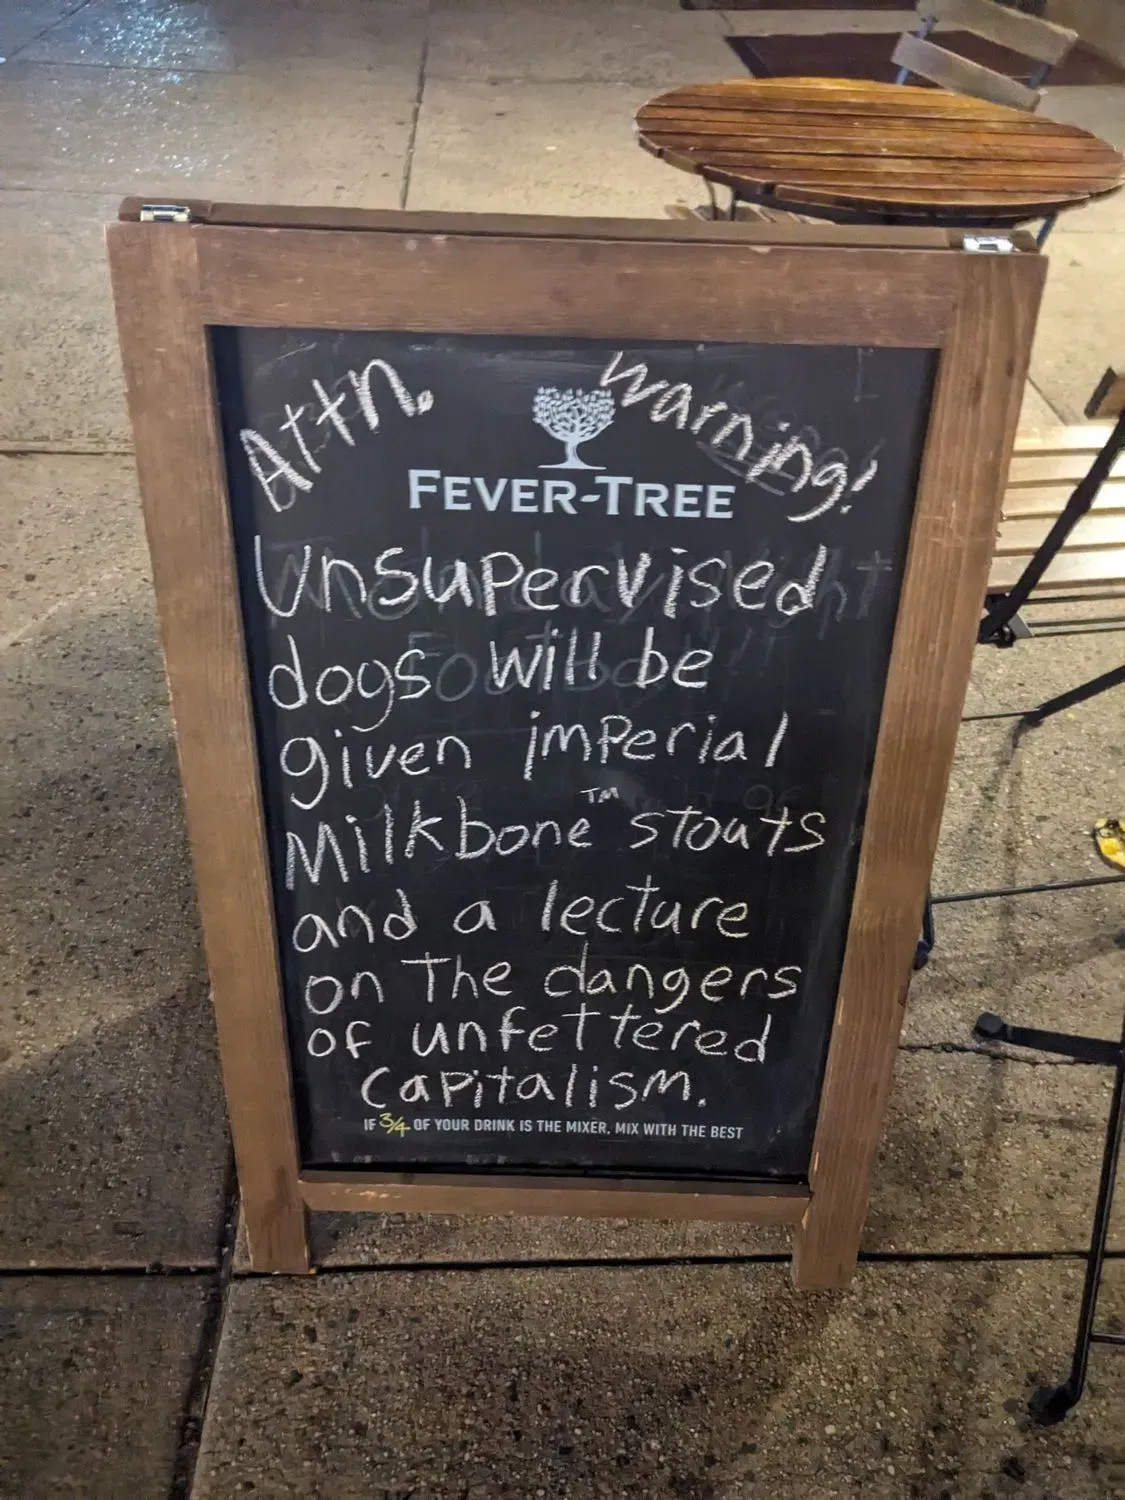 Attn. Warning!
FEVER-TREE
Unsupervised
dogs will be
given imperial
Milkbone™ stouts
and a lecture
on The dangers
of unfettered
capitalism.
IF 3/4 OF YOUR DRINK IS THE MIXER, MIX WITH THE BEST